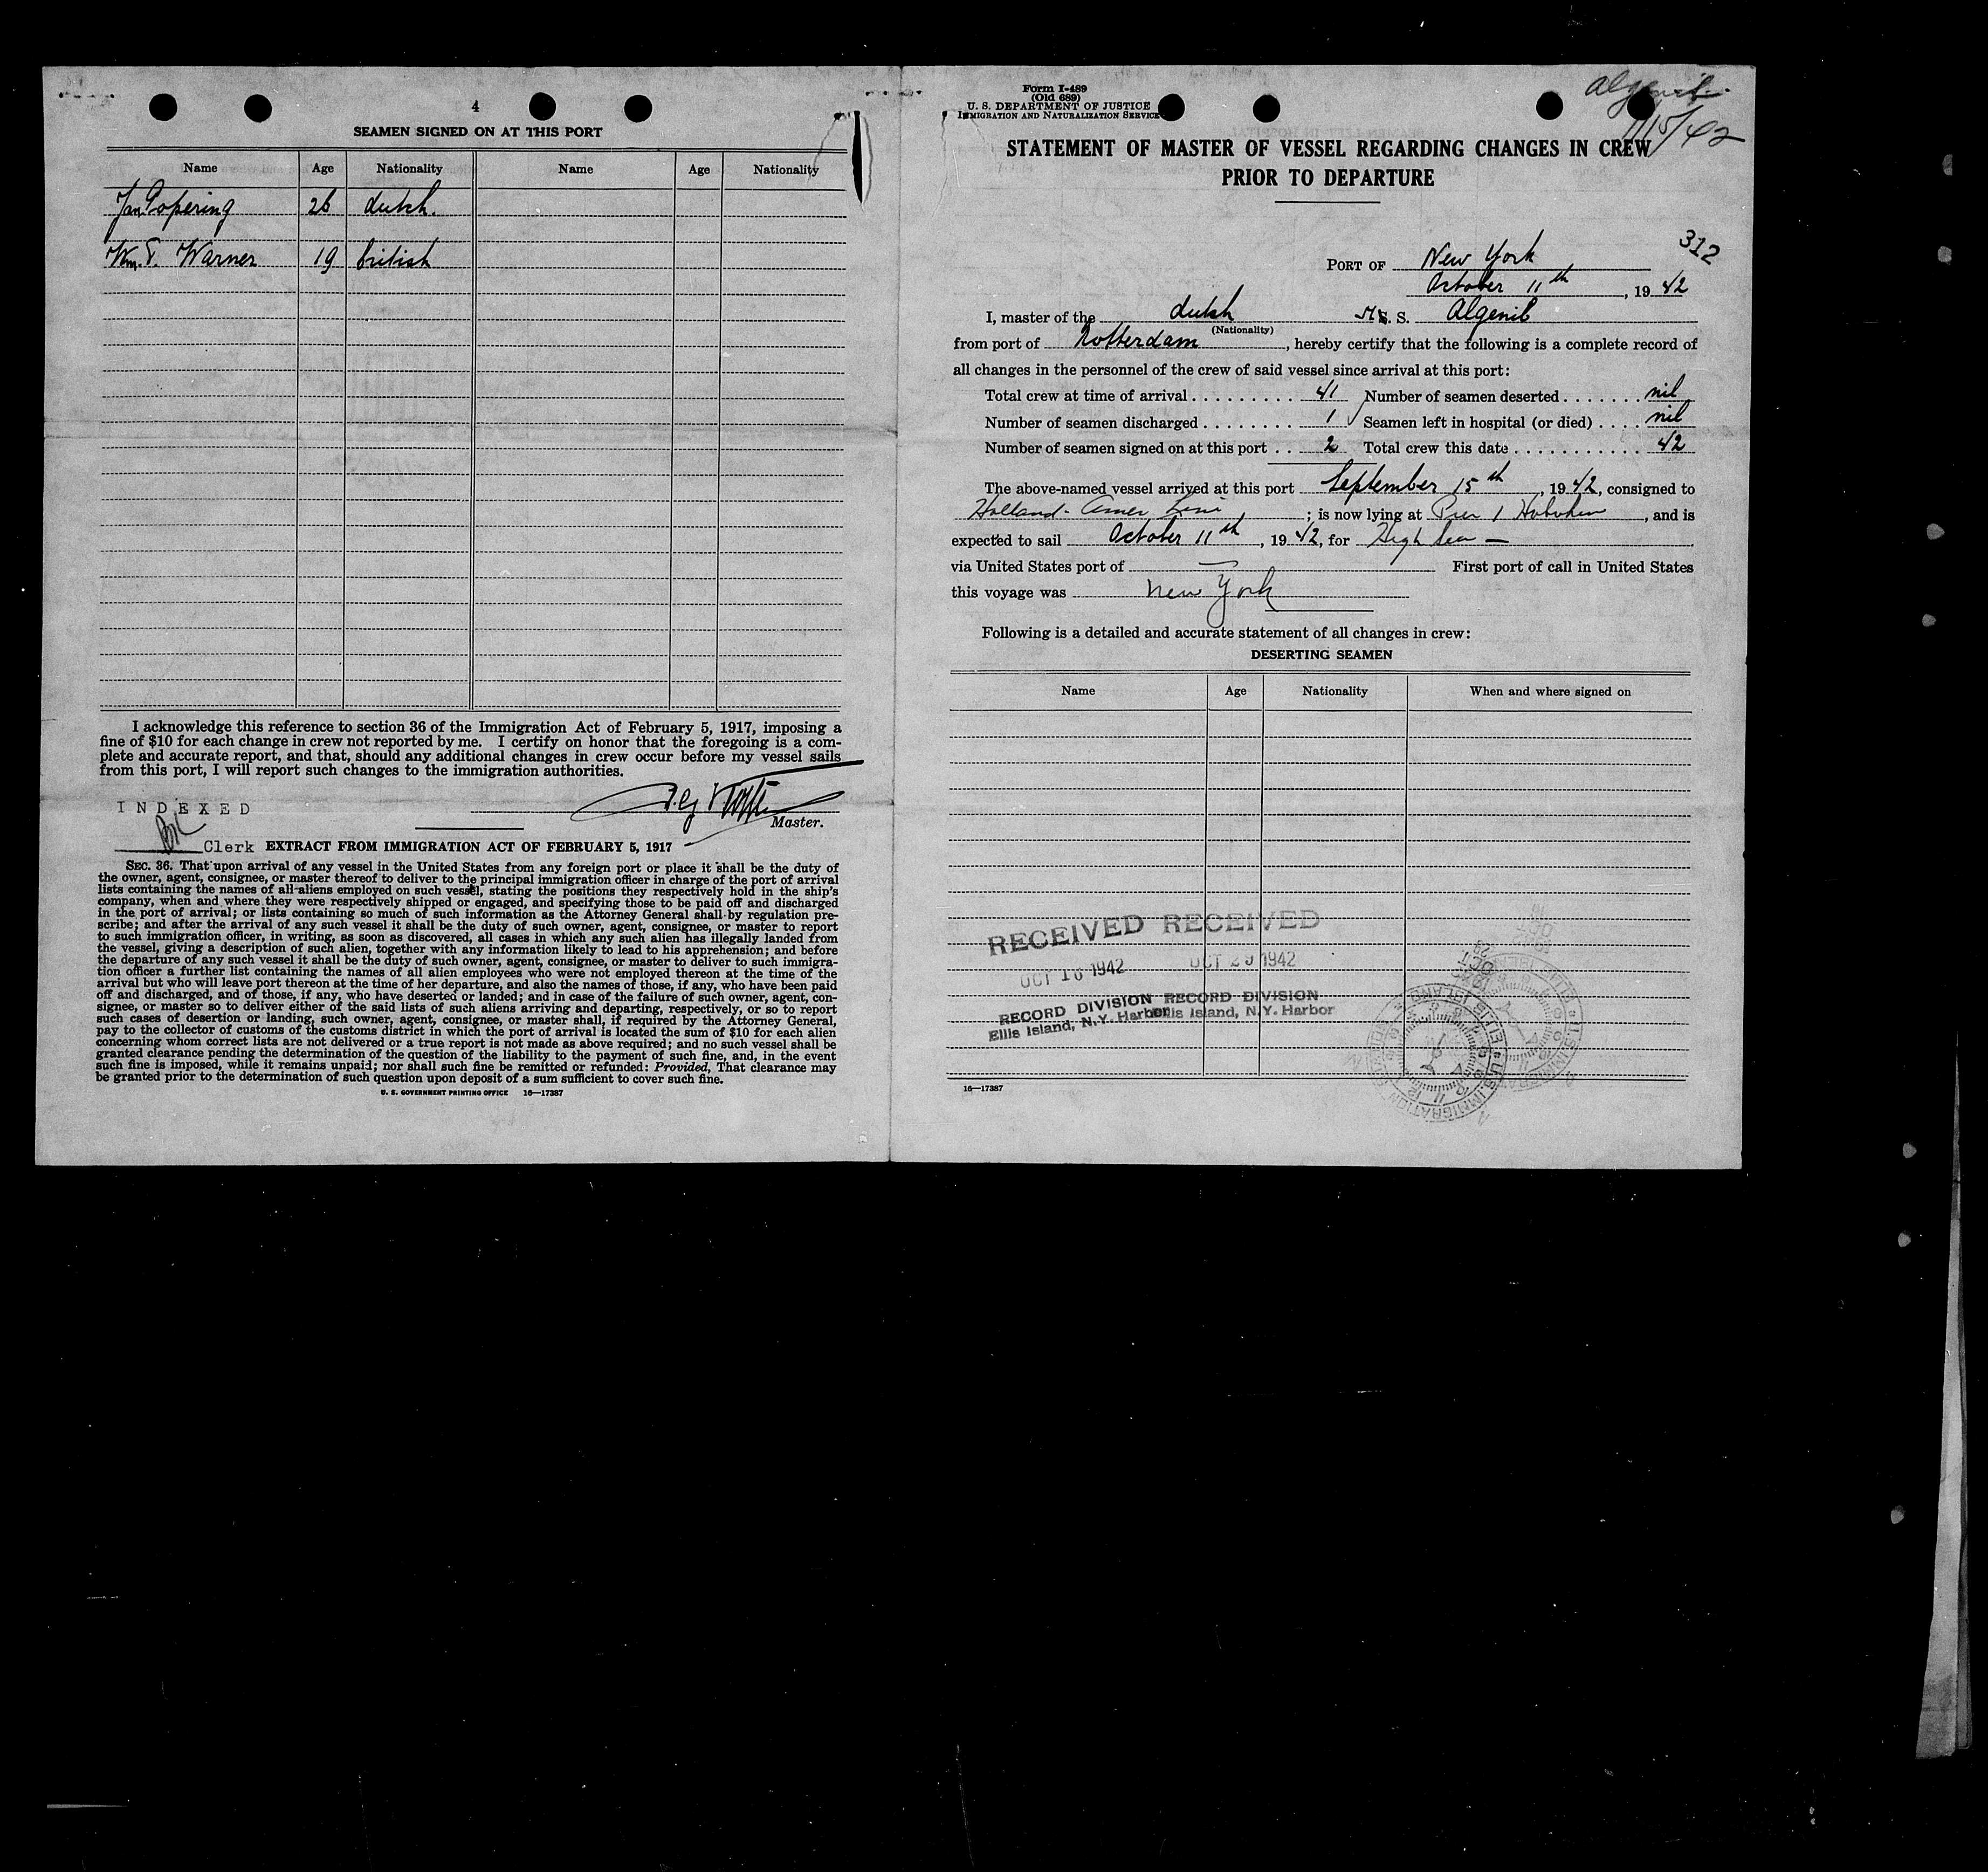 4
SEAMEN SIGNED ON AT THIS PORT
Name Age Nationality Name Age Nationality
Jan Popering 26 dutch.
Wm. T. Warner 19 british
I acknowledge this reference to section 36 of the Immigration Act of February 5, 1917, imposing a
fine of $10 for each change in crew not reported by me. I certify on honor that the foregoing is a com-
plete and accurate report, and that, should any additional changes in crew occur before my vessel sails
from this port, I will report such changes to the immigration authorities.
INDEXED
Master.
Clerk EXTRACT FROM IMMIGRATION ACT OF FEBRUARY 5, 1917
SEC. 36. That upon arrival of any vessel in the United States from any foreign port or place it shall be the duty of
the owner, agent, consignee, or master thereof to deliver to the principal immigration officer in charge of the port of arrival
lists containing the names of all aliens employed on such vessel, stating the positions they respectively hold in the ship's
company, when and where they were respectively shipped or engaged, and specifying those to be paid off and discharged
in the port of arrival; or lists containing so much of such information as the Attorney General shall by regulation pre-
scribe; and after the arrival of any such vessel it shall be the duty of such owner, agent, consignee, or master to report
to such immigration officer, in writing, as soon as discovered, all cases in which any such alien has illegally landed from
the vessel, giving a description of such alien, together with any information likely to lead to his apprehension; and before
the departure of any such vessel it shall be the duty of such owner, agent, consignee, or master to deliver to such immigra-
tion officer a further list containing the names of all alien employees who were not employed thereon at the time of the
arrival but who will leave port thereon at the time of her departure, and also the names of those, if any, who have been paid
off and discharged, and of those, if any, who have deserted or landed; and in case of the failure of such owner, agent, con-
signee, or master so to deliver either of the said lists of such aliens arriving and departing, respectively, or so to report
such cases of desertion or landing, such owner, agent, consignee, or master shall, if required by the Attorney General,
pay to the collector of customs of the customs district in which the port of arrival is located the sum of $10 for each alien
concerning whom correct lists are not delivered or a true report is not made as above required; and no such vessel shall be
granted clearance pending the determination of the question of the liability to the payment of such fine, and, in the event
such fine is imposed, while it remains unpaid; nor shall such fine be remitted or refunded: Provided, That clearance may
be granted prior to the determination of such question upon deposit of a sum sufficient to cover such fine.
U. S. GOVERNMENT PRINTING OFFICE 16—17387
Form I-489
(Old 689)
U. S. DEPARTMENT OF JUSTICE
IMMIGRATION AND NATURALIZATION SERVICE
Algenib
11/5/42
STATEMENT OF MASTER OF VESSEL REGARDING CHANGES IN CREW
PRIOR TO DEPARTURE
312
PORT OF New York
October 11th, 1942
I, master of the dutch M S. S. Algenib
(Nationality)
from port of Rotterdam, hereby certify that the following is a complete record of
all changes in the personnel of the crew of said vessel since arrival at this port:
Total crew at time of arrival . . . . . . . . . 41 Number of seamen deserted . . . . . . . nil
Number of seamen discharged . . . . . . . . 1 Seamen left in hospital (or died) . . . . nil
Number of seamen signed on at this port . . 2 Total crew this date . . . . . . . . . . . 42
The above-named vessel arrived at this port September 15th, 1942, consigned to
Holland-Amer Line; is now lying at Pier 1 Hoboken, and is
expected to sail October 11th, 1942, for High Sea —
via United States port of — First port of call in United States
this voyage was New York
Following is a detailed and accurate statement of all changes in crew:
DESERTING SEAMEN
Name Age Nationality When and where signed on
RECEIVED RECEIVED
OCT 16 1942 OCT 29 1942
RECORD DIVISION RECORD DIVISION
Ellis Island, N.Y. Harbor Ellis Island, N.Y. Harbor
16—17387